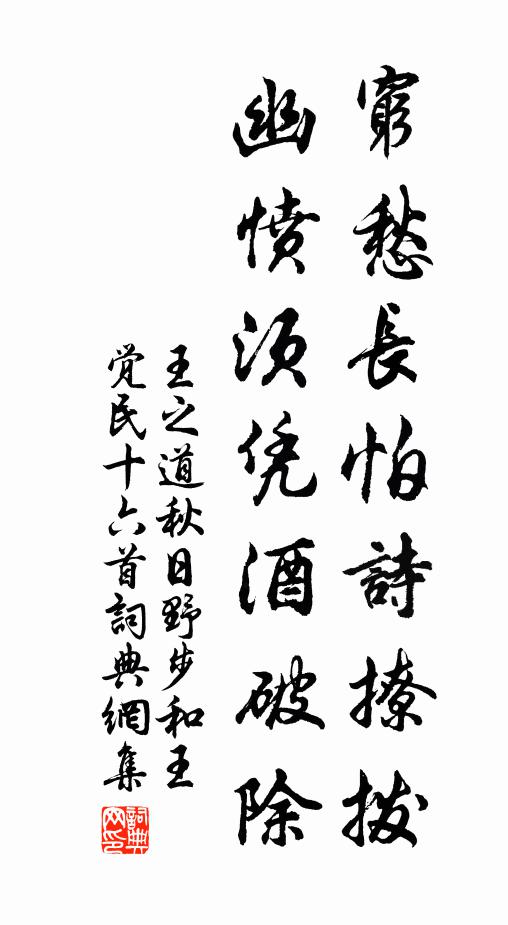 窮愁長怕詩撩撥
幽憤須凭酒破除
王之道秋日野步和王
覚民十六首詞典網集
詞典
网印